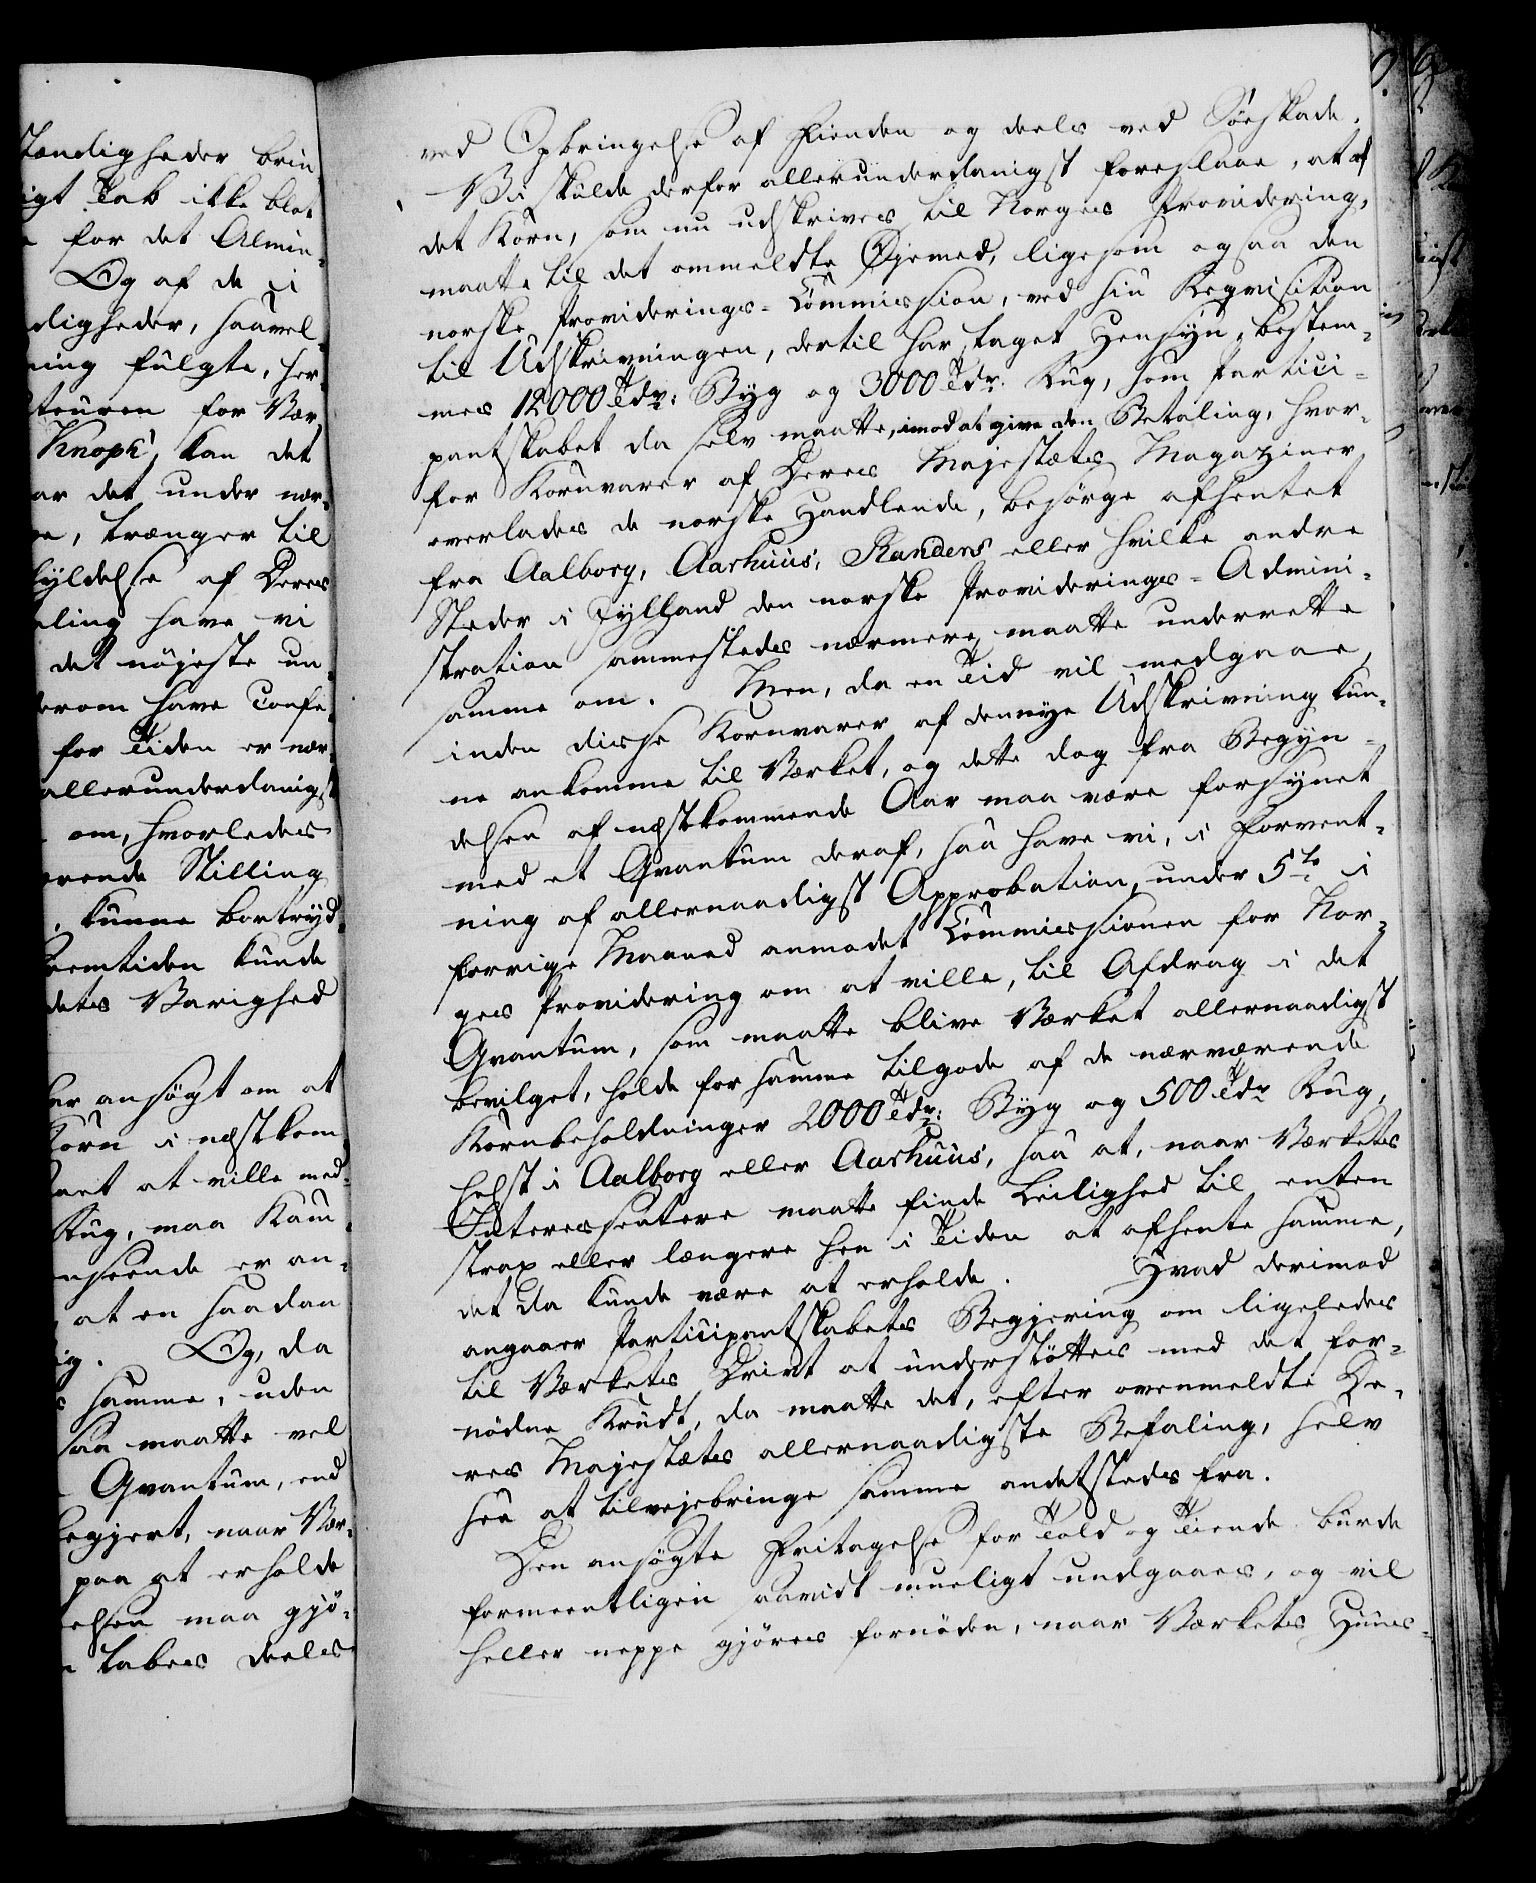 tændigheder brin
igt Tab ikke blot
for det Almin-
Og af de i
digheder, saavel
ning fulgte, her-
teuren for Vær
Knoph, kan det
ar det under nær-
, trænger til
fyldelse af Deres
ling have vi
det nöjeste un
erom have Confe-
for Tiden er nær
allerunderdanigst
om, hvorledes
erende Stilling
, kunne bortryd-
remtiden kunde
dets Varighed
er ansögt om at
Korn i næstkom
aet at ville med-
Rug, maa Kam
nseende er an-
at en saadan
ig. Og, da
samme, uden
saa maatte vel
Qvantum, end
begjert, naar Vær-
paa at erholde
elsen maa gjö-
tabes deels
ved Opbringelse af Fienden og deels ved Söeskade.
Vi skulde derfor allerunderdanigst foreslaae, at af
det Korn, som nu udskrives til Norges Providering,
maatte til det ommeldte Öjemed, ligesom ogsaa den
norske Providerings-Commission, ved sin Reqvisition
til Udskrivningen, dertil har taget Hensyn, bestem-
mes 12000 Tdr: Byg og 3000 Tdr. Rug, som Partici-
pantskabet da selv maatte, imod at give den Betaling, hvor-
for Kornvarer af Deres Majestæts Magaziner
overlades de norske Handlende, besörge afhentet
fra Aalborg, Aarhuus, Randers eller hvilke andre
Steder i Jylland den norske Providerings-Admini-
stration sammestedes nærmere maatte underrette
samme om. Men, da en Tid vil medgaae,
inden disse Kornvarer af den nye Udskrivning kun-
ne ankomme til Værket, og dette dog fra Begyn-
delsen af næstkommende Aar maa være forsynet
med et Qvantum deraf, saa have vi, i Forvent-
ning af allernaadigst Approbation, under 5te i
forrige Maaned anmodet Commissionen for Nor-
ges Providering om at ville, til Afdrag i det
Qvantum, som maatte blive Værket allernaadigst
bevilget, holde for samme tilgode af de nærværende
Kornbeholdninger 2000 Tdr: Byg og 500 Tdr Rug,
helst i Aalborg eller Aarhuus, saa at, naar Værkets
Interessentere maatte finde Leilighed til enten
strax eller længere hen i Tiden at afhente samme,
det da kunde være at erholde. Hvad derimod
angaaer Participantskabets Begjering om ligeledes
til Værkets Drivt at understöttes med det for-
nödne Krudt, da maatte det, efter ovenmeldte De-
res Majestæts allernaadigste Befaling, selv
see at tilvejebringe samme andetstedsfra.
Den ansögte Fritagelse for Told og Tiende burde
formeentligen saavidt mueligt undgaaes, og vil
heller neppe gjöres fornöden, naar Værkets Huus-